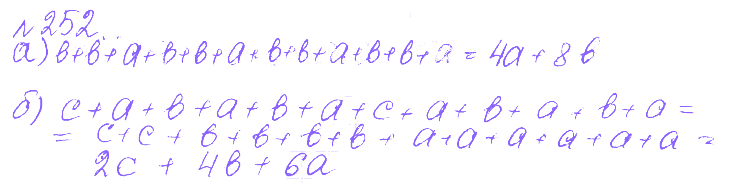 №252.
а) в+в+а+в+в+а+в+в+а+в+в+а = 4а + 8в
б) с+а+в+а+в+а+с+а+в+а+в+а =
= с+с+в+в+в+в+а+а+а+а+а+а =
2с + 4в + 6а